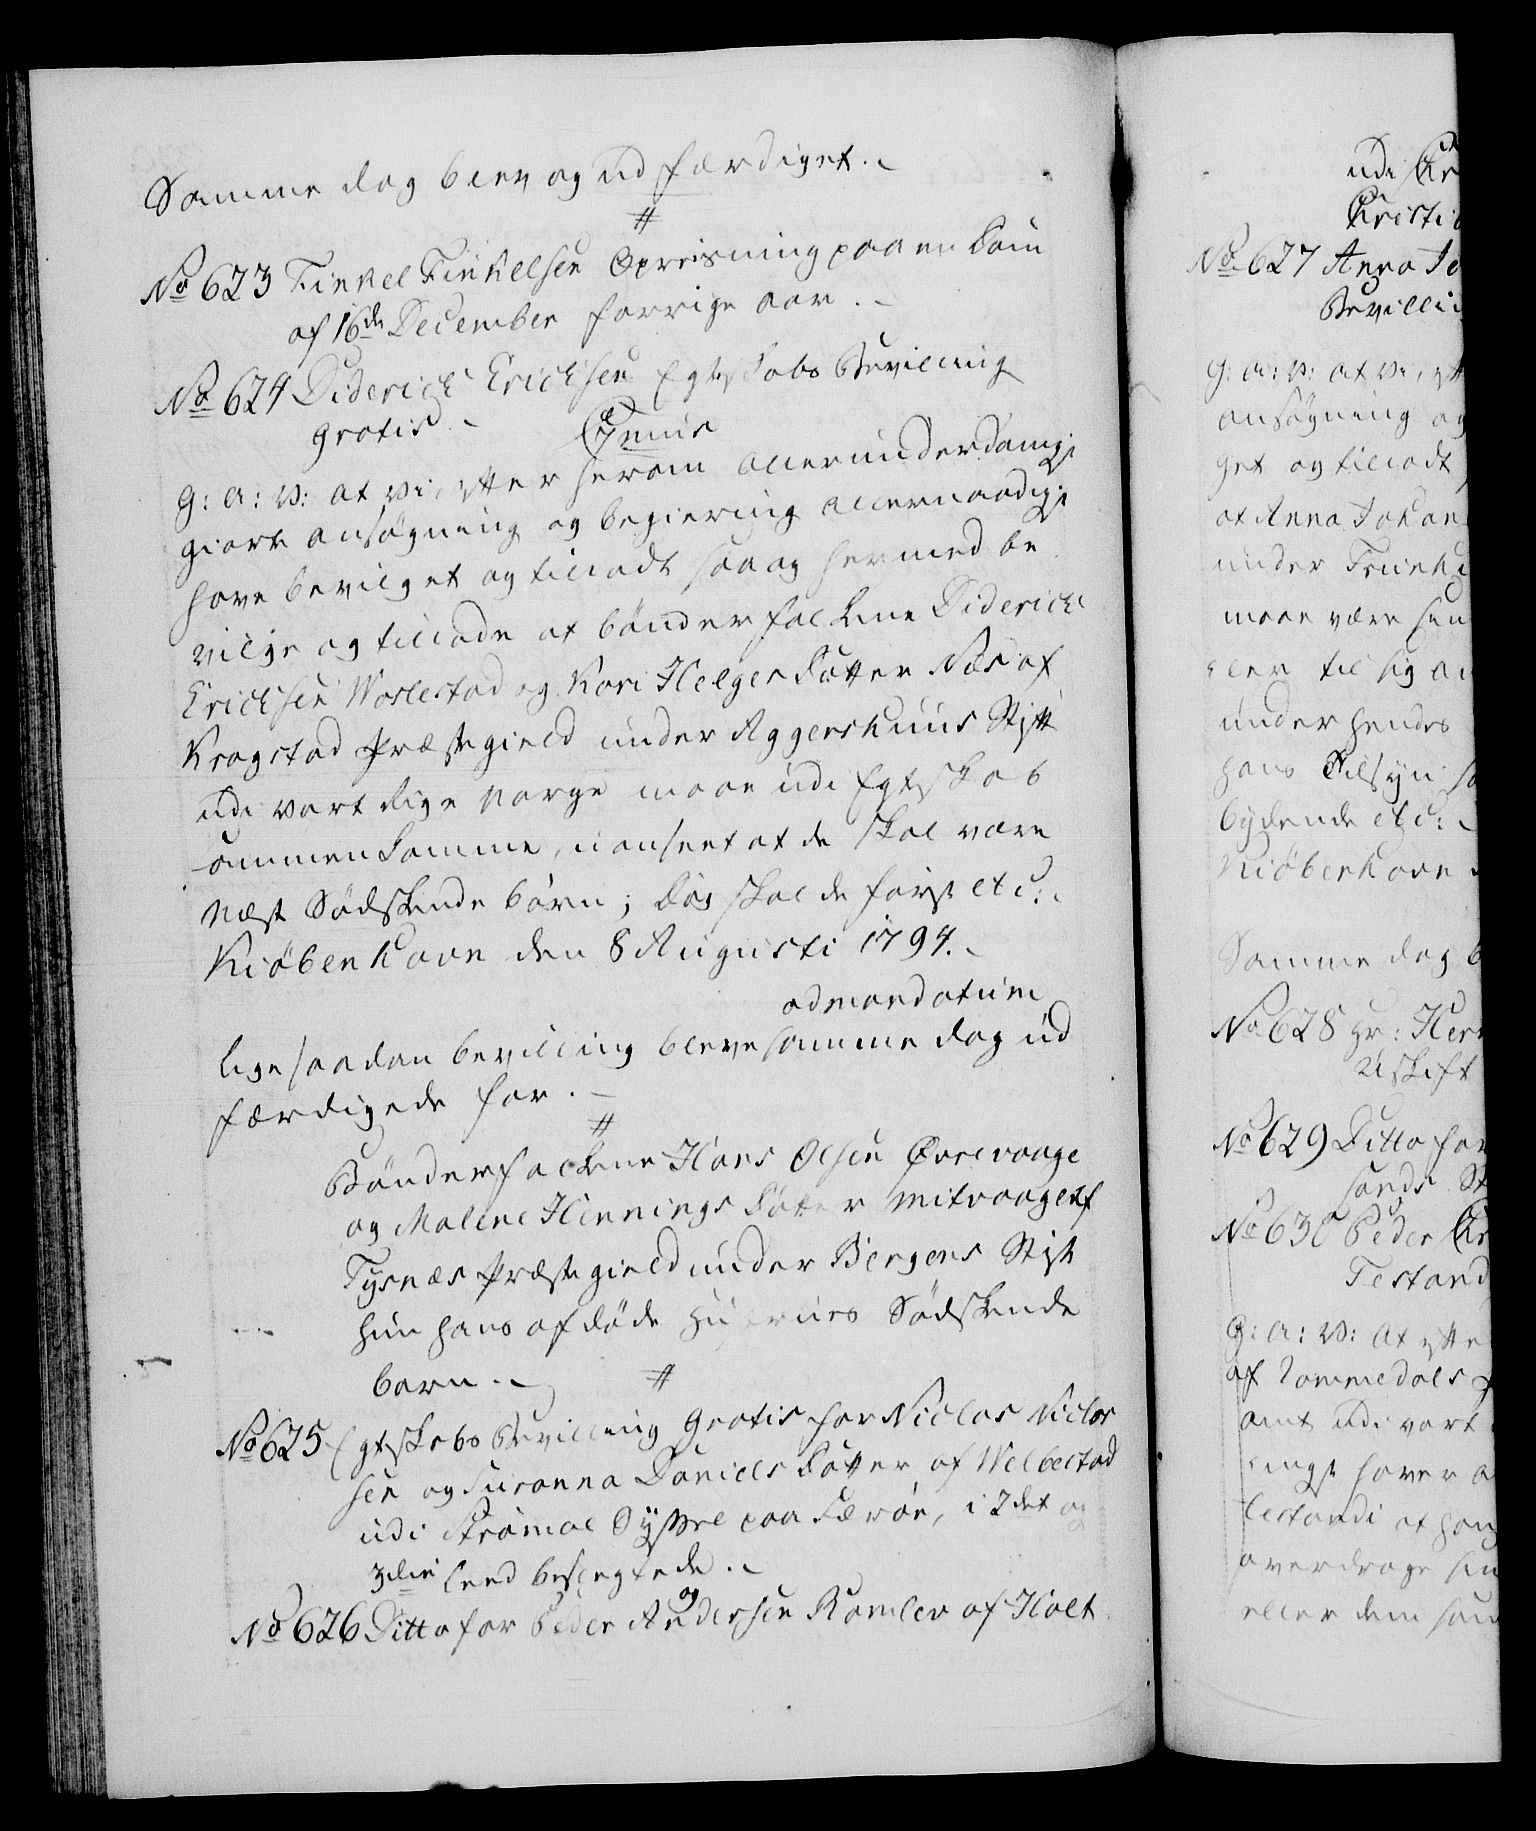 Samme dag blev og udfærdiget.
#
No 623 Tinkel Tinkelsen Opreisning paa en Dom
af 16de December forrige aar.
No 624 Diderich Erichsen Egteskabs Bevilling
gratis. Genus
G: A: V: at vi, efter herom allerunderdanig:
giorte ansøgning og begiering allernaadig:
have bevilget og tilladt saa og hermed be
vilge og tillade at bönderfolkene Diderich
Erichsen Worlestad og Kari Helgesdatter Næs af
Kragstad Præstegield under Aggershuus Stift
udi vort Rige Norge maae udi Egteskab
sammenkomme, uanseet at de skal være
Næst Södskende börn; dog skal de först etc:
Kiöbenhavn den 8 Augusti 1794.
ad mandatum
lige saadan bevilling bleve samme dag ud
færdigede for.
#
Bönderfolkene Hans Olsen Övrevaage
og Malene Hennings datter Mitvaage af
Tysnæs Præstegield under Bergens Stift
hun hans afdöde Hustrues Södskende
barn.
#
No 625 Egteskabs Bevilling Gratis for Niclas Niclas
sen og Susanna Daniels datter af Welbestad
udi Strömöe Syssel paa Færöe, i 2det og
3die Leed beslegtede.
No 626 Ditto for Peder Andersen Ramlev og af Holt
udi
Christi
No 627 Anna Jo
Bevilli
G: A: V: at vi, eft
ansøgning og
get og tilladt
at Anna Johan
under Trunhi
maae være sin
eller til sig a
under hendes
hans Tilsyn
bydende etc:
Kiöbenhavn
Samme dag b
No 628 Hr: Her
Uskift
No 629 Ditto for
sands St
No 630 Peder
Testand
G: A: V: at efte
af Rommedals
amt udi vort
lingst haver
testandi at han
overdrage sin
eller dem som